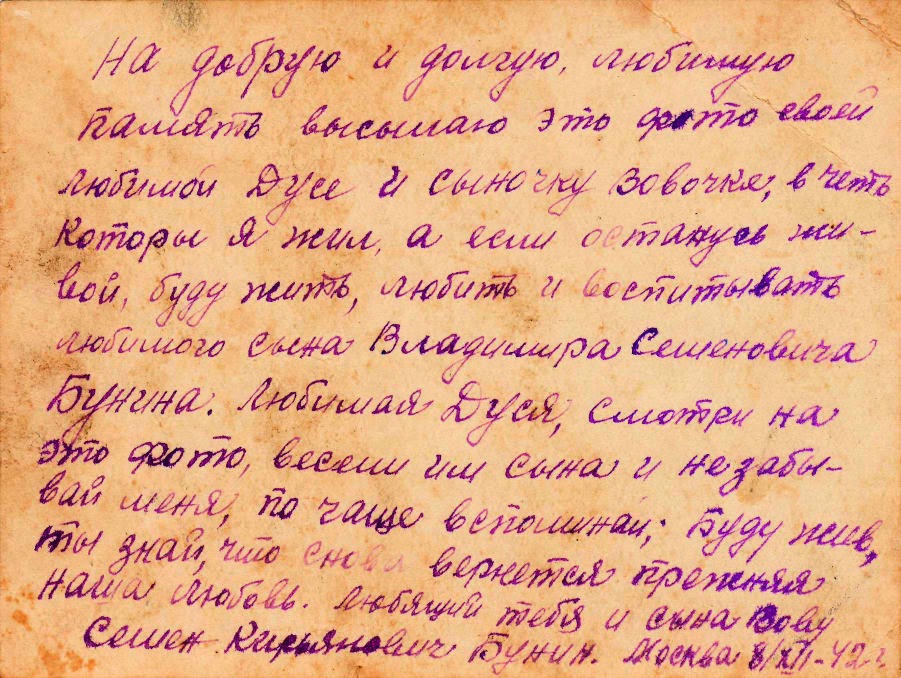 На добрую и долгую, любимую
память высылаю это фото своей
любимой Дусе и сыночку Вовочке, в честь
которы я жил, а если останусь жи-
вой, буду жить, любить и воспитывать
любимого сына Владимира Семеновича
Бунина. Любимая Дуся, смотри на
это фото, весели им сына и не забы-
вай меня, по чаще вспоминай; Буду жив,
ты знай, что снова вернется прежняя
наша любовь. Любящий тебя и сына Вову
Семен Кирьянович Бунин. Москва 8/XII-42 г.